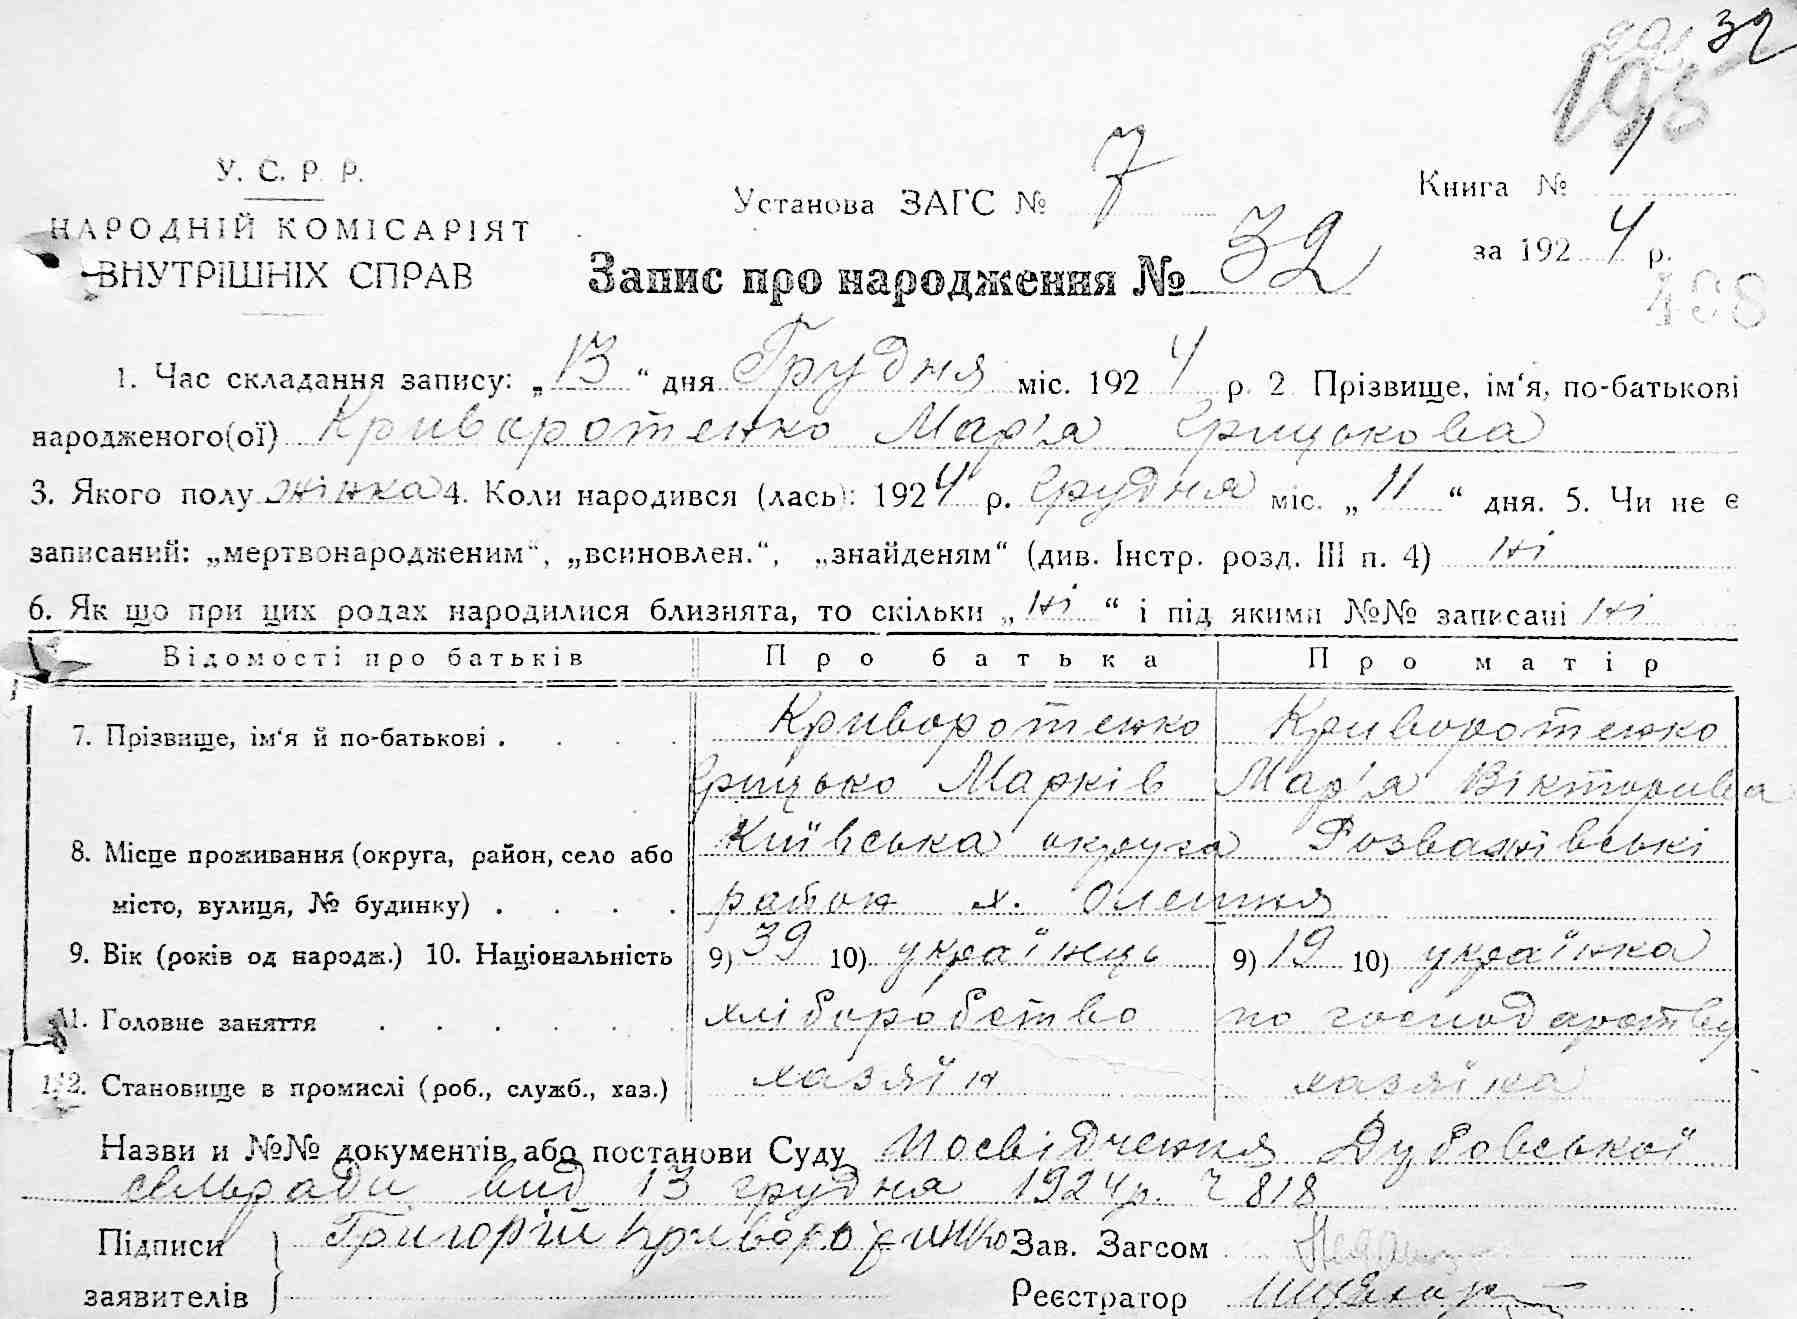 32
195
У. С. Р. Р.
НАРОДНІЙ КОМІСАРІЯТ
ВНУТРІШНІХ СПРАВ
Установа ЗАГС № 7
Книга № 1
за 1924 р.
Запис про народження № 32
1. Час складання запису: „13“ дня Грудня міс. 1924 р. 2 Прізвище, ім‘я, по-батькові
народженого(ої) Криворотенко Мар'я Грицькова
3. Якого полу жінка 4. Коли народився (лась): 1924 р. Грудня міс. „11“ дня. 5. Чи не є
записаний: „мертвонародженим“, „всиновлен.“, „знайденям“ (див. Інстр. розд. III п. 4) ні
6. Як що при цих родах народилися близнята, то скільки „ні“ і під якими №№ записані ні
Відомості про батьків Про батька Про матір
7. Прізвище, ім‘я й по-батькові . . . . Криворотенко Криворотенко
Грицько Марків Мар'я Вікторива
8. Місце проживання (округа, район, село або Київська округа Розважівські
місто, вулиця, № будинку) . . . . район х. Олешня
9. Вік (років од народж.) 10. Національність 9) 39 10) українець 9) 19 10) українка
11. Головне заняття . . . . . . хліборобство по господарству
12. Становище в промислі (роб., служб., хаз.) хазяїн хазяїка
Назви и №№ документів або постанови Суду Посвідчення Дубовської
сельради вид 13 грудня 1924р. Ч 818
Підписи Григорій Криворотенко Зав. Загсом
заявителів Реєстратор